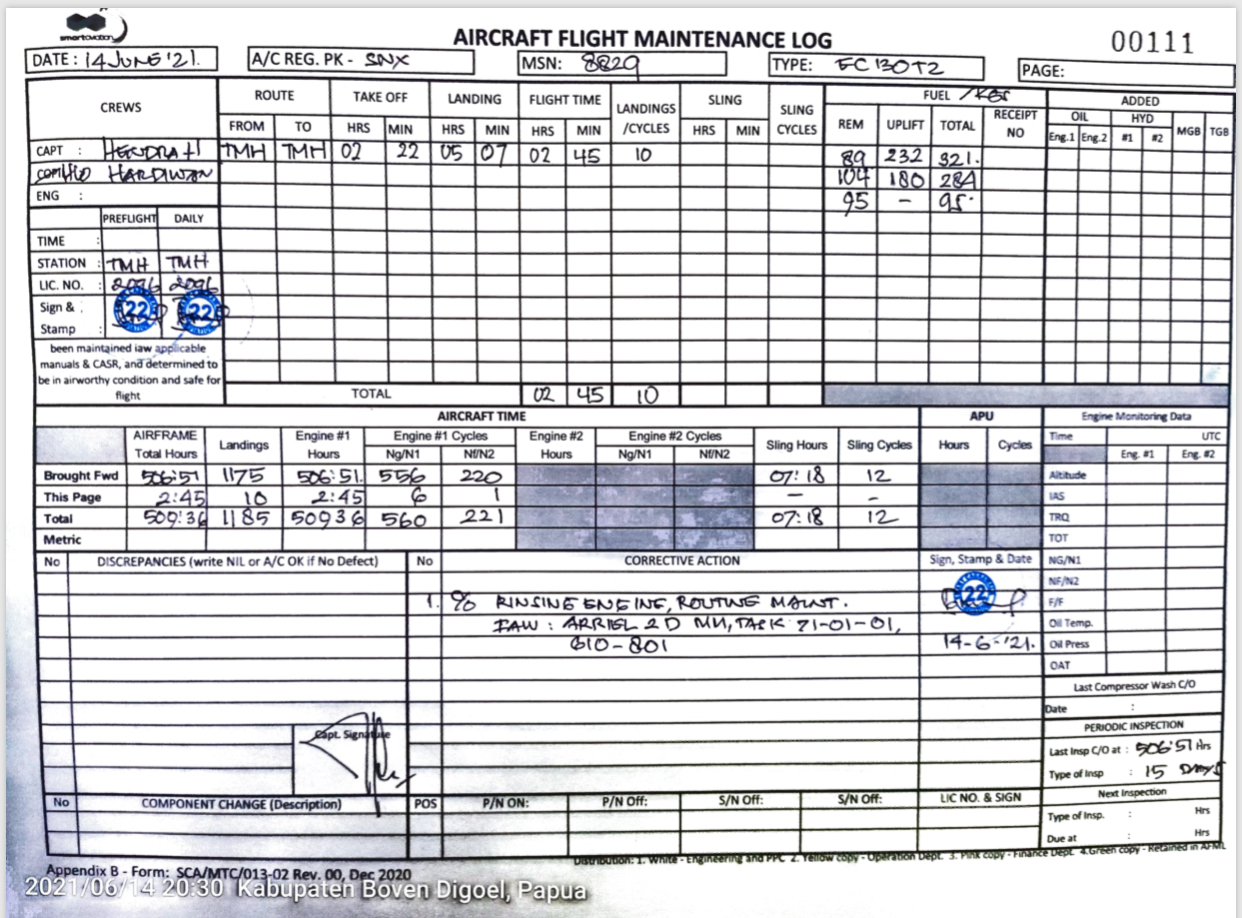 smartaviation
AIRCRAFT FLIGHT MAINTENANCE LOG
00111
DATE : 14 JUNE '21.
A/C REG. PK - SNX
MSN: 8829
TYPE: EC 130T2
PAGE:
CREWS
ROUTE
TAKE OFF
LANDING
FLIGHT TIME
LANDINGS /CYCLES
SLING
SLING CYCLES
FUEL / KGS
ADDED
FROM TO HRS MIN HRS MIN HRS MIN HRS MIN REM UPLIFT TOTAL RECEIPT NO
OIL HYD MGB TGB
Eng.1 Eng.2 #1 #2
CAPT : HENDRA H TMH TMH 02 22 05 07 02 45 10 89 232 321.
HARDIWAN 104 180 284
ENG : 95 - 95.
PREFLIGHT DAILY
TIME :
STATION : TMH TMH
LIC. NO. : 2096 2096
Sign & : 22 22
Stamp :
been maintained iaw applicable
manuals & CASR, and determined to
be in airworthy condition and safe for
flight
TOTAL 02 45 10
AIRCRAFT TIME
APU
Engine Monitoring Data
AIRFRAME Total Hours Landings Engine #1 Hours Engine #1 Cycles Engine #2 Hours Engine #2 Cycles Sling Hours Sling Cycles Hours Cycles
Ng/N1 Nf/N2 Ng/N1 Nf/N2
Time UTC
Eng. #1 Eng. #2
Brought Fwd 506:51 1175 506:51. 556 220 07:18 12
This Page 2:45 10 2:45 6 1 - -
Total 509:36 1185 509 36 560 221 07:18 12
Metric
Altitude
IAS
TRQ
TOT
NG/N1
NF/N2
F/F
Oil Temp.
Oil Press
OAT
No DISCREPANCIES (write NIL or A/C OK if No Defect) No CORRECTIVE ACTION Sign, Stamp & Date
1. C/O RINSING ENGINE, ROUTINE MAINT. 22
IAW : ARRIEL 2D MM, TASK 71-01-01,
610-801 14-6-'21.
Capt. Signature
Last Compressor Wash C/O
Date :
PERIODIC INSPECTION
Last Insp C/O at : 506:51 Hrs
Type of Insp : 15 DAYS
Next Inspection
Type of Insp. : Hrs
Due at : Hrs
No COMPONENT CHANGE (Description) POS P/N ON: P/N Off: S/N Off: S/N Off: LIC NO. & SIGN
Distribution: 1. White - Engineering and PPC 2. Yellow copy - Operation Dept. 3. Pink copy - Finance Dept. 4.Green copy - Retained in AFML
Appendix B - Form: SCA/MTC/013-02 Rev. 00, Dec 2020
2021/06/14 20:30 Kabupaten Boven Digoel, Papua